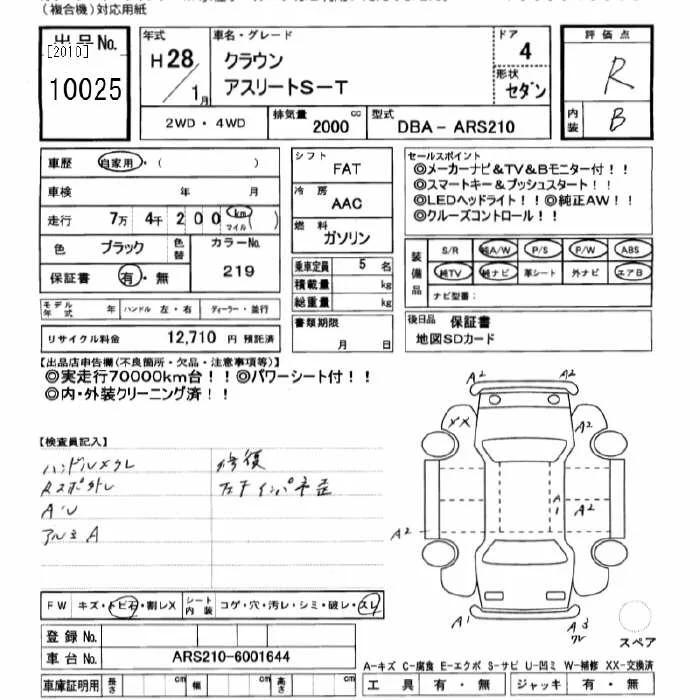 （複合機）対応用紙
出品No.
[2010]
10025
年式
H28/1月
車名・グレード
クラウン
アスリートS-T
ドア
4
形状
セダン
評価点
R
内装
B
2WD・4WD
排気量 2000 cc
型式 DBA- ARS210
車歴 自家用・（ ）
車検 年 月
走行 7万 4千 200 km マイル
色 ブラック 色替 カラーNo.
219
保証書 有・無
モデル年式 年 ハンドル 左・右 ディーラー・並行
リサイクル料金 12,710 円 預託済
シフト
FAT
冷房
AAC
燃料
ガソリン
乗車定員 5 名
積載量 kg
総重量 kg
書類期限
月 日
セールスポイント
◎メーカーナビ&TV&Bモニター付！！
◎スマートキー&プッシュスタート！！
◎LEDヘッドライト！！◎純正AW！！
◎クルーズコントロール！！
装備品
S/R 純A/W P/S P/W ABS
純TV 純ナビ 革シート 外ナビ エアB
ナビ型番：
後日品 保証書
地図SDカード
【出品店申告欄(不良箇所・欠品・注意事項等)】
◎実走行70000km台！！◎パワーシート付！！
◎内・外装クリーニング済！！
【検査員記入】
ハンドルスレ 修復
アルミA
A2 A2
XX A2
A2 A1 A2
A1 A3
FW キズ・トビ石・割レX シート内装 コゲ・穴・汚レ・シミ・破レ・スレ
スペア
登録No.
車台No. ARS210-6001644
A-キズ C-腐食 E-エクボ S-サビ U-凹ミ W-補修 XX-交換済
車庫証明用 長さ cm 幅 cm 高さ cm
工具 有・無 ジャッキ 有・無